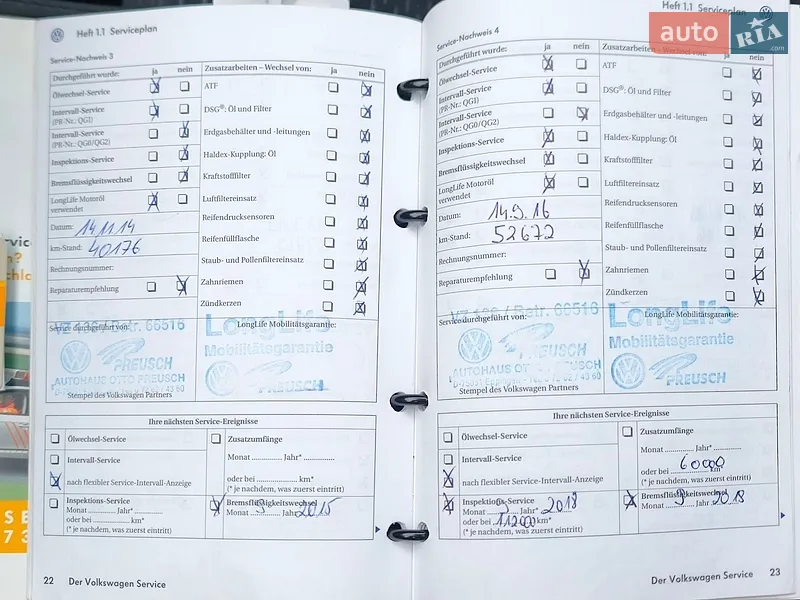 Heft 1.1 Serviceplan
Service-Nachweis 3
Durchgeführt wurde: ja nein
Ölwechsel-Service
Intervall-Service
(PR-Nr.: QG1)
Intervall-Service
(PR-Nr.: QG0/QG2)
Inspektions-Service
Bremsflüssigkeitswechsel
LongLife Motoröl
verwendet
Datum: 14.11.14
km-Stand: 40176
Rechnungsnummer:
Reparaturempfehlung
Zusatzarbeiten – Wechsel von: ja nein
ATF
DSG®: Öl und Filter
Erdgasbehälter und -leitungen
Haldex-Kupplung: Öl
Kraftstofffilter
Luftfiltereinsatz
Reifendrucksensoren
Reifenfüllflasche
Staub- und Pollenfiltereinsatz
Zahnriemen
Zündkerzen
Service durchgeführt von:
66516
PREUSCH
AUTOHAUS OTTO PREUSCH
Stempel des Volkswagen Partners
LongLife Mobilitätsgarantie:
LongLife
Mobilitätsgarantie
PREUSCH
Ihre nächsten Service-Ereignisse
Ölwechsel-Service
Intervall-Service
nach flexibler Service-Intervall-Anzeige
Inspektions-Service
Monat ............ Jahr* ............
oder bei ............ km*
(* je nachdem, was zuerst eintritt)
Zusatzumfänge
Monat ............ Jahr* ............
oder bei ............ km*
(* je nachdem, was zuerst eintritt)
Bremsflüssigkeitswechsel
Monat 9 Jahr 2015
22 Der Volkswagen Service
Heft 1.1 Serviceplan
auto RIA
.com
Service-Nachweis 4
Durchgeführt wurde: ja nein
Ölwechsel-Service
Intervall-Service
(PR-Nr.: QG1)
Intervall-Service
(PR-Nr.: QG0/QG2)
Inspektions-Service
Bremsflüssigkeitswechsel
LongLife Motoröl
verwendet
Datum: 14.9.16
km-Stand: 52672
Rechnungsnummer:
Reparaturempfehlung
Zusatzarbeiten – Wechsel von: ja nein
ATF
DSG®: Öl und Filter
Erdgasbehälter und -leitungen
Haldex-Kupplung: Öl
Kraftstofffilter
Luftfiltereinsatz
Reifendrucksensoren
Reifenfüllflasche
Staub- und Pollenfiltereinsatz
Zahnriemen
Zündkerzen
Service durchgeführt von:
66516
PREUSCH
AUTOHAUS OTTO PREUSCH
Stempel des Volkswagen Partners
LongLife Mobilitätsgarantie:
LongLife
Mobilitätsgarantie
PREUSCH
Ihre nächsten Service-Ereignisse
Ölwechsel-Service
Intervall-Service
nach flexibler Service-Intervall-Anzeige
Inspektions-Service
Monat 9 Jahr* 2018
oder bei 112000 km*
(* je nachdem, was zuerst eintritt)
Zusatzumfänge
Monat ............ Jahr* ............
oder bei 60000 km*
(* je nachdem, was zuerst eintritt)
Bremsflüssigkeitswechsel
Monat 9 Jahr 2018
Der Volkswagen Service 23